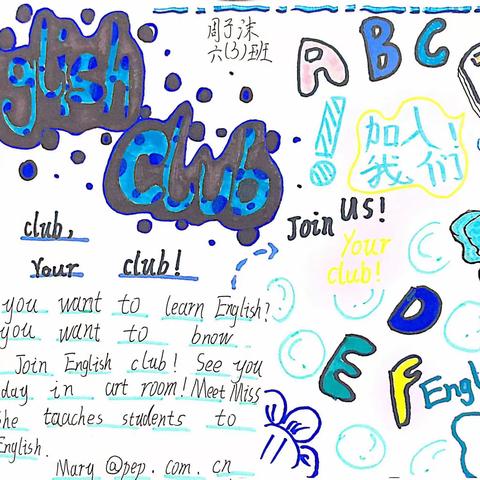 glish
Club
周子沫
六(3)班
A B C
加入!
我们
Join Us!
Your
club!
club,
Your club!
you want to learn English?
you want to bnow
Join English club! See you
day in art room! Meet Miss
she taaches students to
English.
Mary @pep. com. cn
D
E
F
Engl